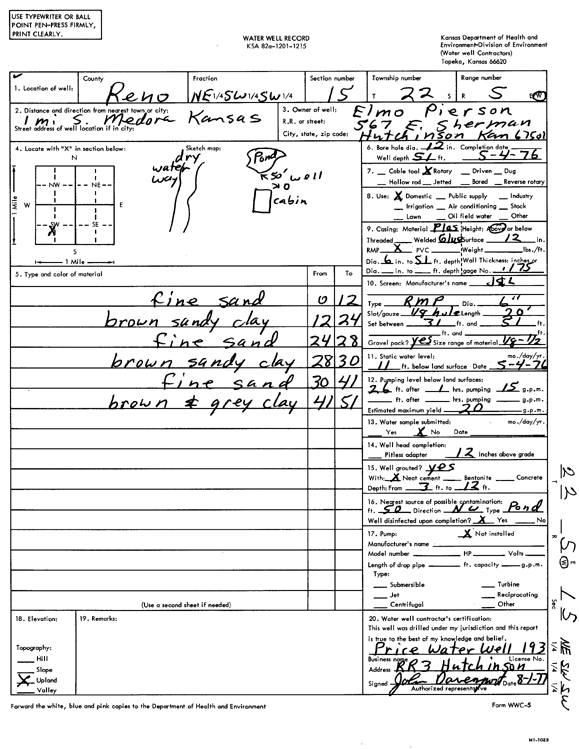 USE TYPEWRITER OR BALL
POINT PEN-PRESS FIRMLY,
PRINT CLEARLY.
WATER WELL RECORD
KSA 82a-1201-1215
Kansas Department of Health and
Environment-Division of Environment
(Water well Contractors)
Topeka, Kansas 66620
1. Location of well:
County
Reno
Fraction
NE 1/4 SW 1/4 SW 1/4
Section number
15
Township number
T 22 S
Range number
R 5 E/W
2. Distance and direction from nearest town or city:
1 mi S. Medora Kansas
Street address of well location if in city:
3. Owner of well: Elmo Pierson
R.R. or street: 567 E. Sherman
City, state, zip code: Hutchinson Kan 67501
4. Locate with "X" in section below:
N
NW NE
W E
SW SE
X
S
1 Mile
1 Mile
Sketch map:
dry
water
way
Pond
50' well
cabin
6. Bore hole dia. 12 in. Completion date
Well depth 51 ft. 5-4-76
7. Cable tool X Rotary Driven Dug
Hollow rod Jetted Bored Reverse rotary
8. Use: X Domestic Public supply Industry
Irrigation Air conditioning Stock
Lawn Oil field water Other
9. Casing: Material Plas Height: Above or below
Threaded Welded Glue Surface 12 in.
RMP X PVC Weight lbs./ft.
Dia. 6 in. to 51 ft. depth Wall Thickness: inches or
Dia. in. to ft. depth gage No. .175
5. Type and color of material From To
fine sand 0 12
brown sandy clay 12 24
fine sand 24 28
brown sandy clay 28 30
fine sand 30 41
brown & grey clay 41 51
(Use a second sheet if needed)
10. Screen: Manufacturer's name
Type RMP Dia. 6"
Slot/gauze 1/8 hole Length 20'
Set between 31 ft. and 51 ft.
ft. and ft.
Gravel pack? yes Size range of material 1/8-1/2
11. Static water level: mo./day/yr.
11 ft. below land surface Date 5-4-76
12. Pumping level below land surfaces:
26 ft. after 1 hrs. pumping 15 g.p.m.
ft. after hrs. pumping g.p.m.
Estimated maximum yield 20 g.p.m.
13. Water sample submitted: mo./day/yr.
Yes X No Date
14. Well head completion:
Pitless adapter 12 Inches above grade
15. Well grouted? yes
With: X Neat cement Bentonite Concrete
Depth: From 3 ft. to 12 ft.
16. Nearest source of possible contamination:
ft. 50 Direction NW Type Pond
Well disinfected upon completion? X Yes No
17. Pump: X Not installed
Manufacturer's name
Model number HP Volts
Length of drop pipe ft. capacity g.p.m.
Type:
Submersible Turbine
Jet Reciprocating
Centrifugal Other
18. Elevation:
Topography:
Hill
Slope
X Upland
Valley
19. Remarks:
20. Water well contractor's certification:
This well was drilled under my jurisdiction and this report
is true to the best of my knowledge and belief.
Price Water Well 193
Business name License No.
Address RR3 Hutchinson
Signed John Davenport Date 8-1-77
Authorized representative
Forward the white, blue and pink copies to the Department of Health and Environment
Form WWC-5
T 22 - R 5 E W Sec 15 1/4 NE 1/4 SW 1/4 SW
M1-1023